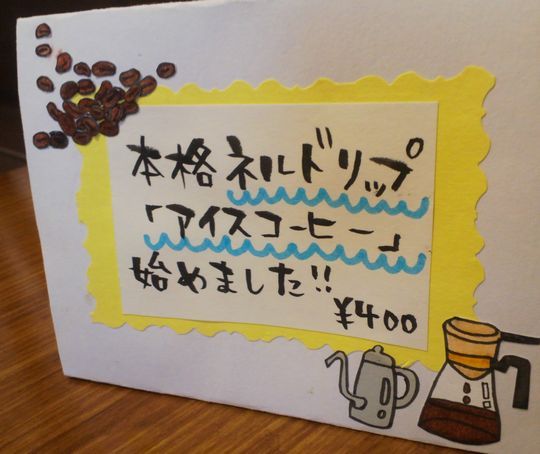 本格ネルドリップ
「アイスコーヒー」
始めました!!
¥400